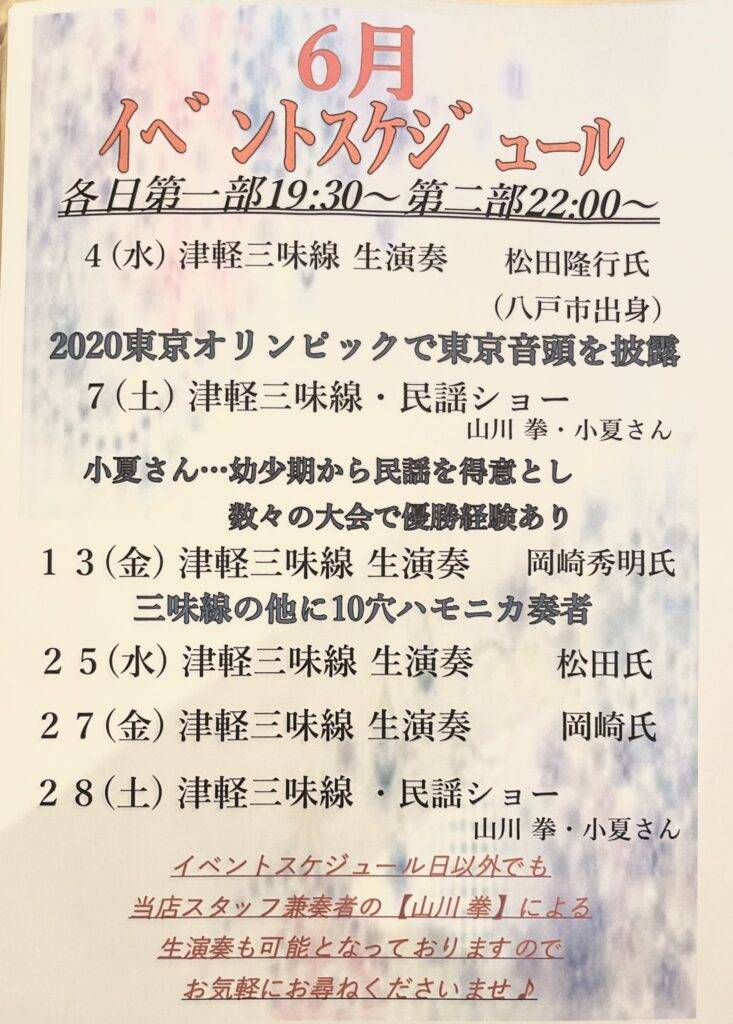 6月
イベントスケジュール
各日第一部19:30～第二部22:00～
4(水) 津軽三味線 生演奏 松田隆行氏
(八戸市出身)
2020東京オリンピックで東京音頭を披露
7(土) 津軽三味線・民謡ショー
山川 拳・小夏さん
小夏さん…幼少期から民謡を得意とし
数々の大会で優勝経験あり
13(金) 津軽三味線 生演奏 岡崎秀明氏
三味線の他に10穴ハモニカ奏者
25(水) 津軽三味線 生演奏 松田氏
27(金) 津軽三味線 生演奏 岡崎氏
28(土) 津軽三味線 ・民謡ショー
山川 拳・小夏さん
イベントスケジュール日以外でも
当店スタッフ兼奏者の【山川 拳】による
生演奏も可能となっておりますので
お気軽にお尋ねくださいませ♪